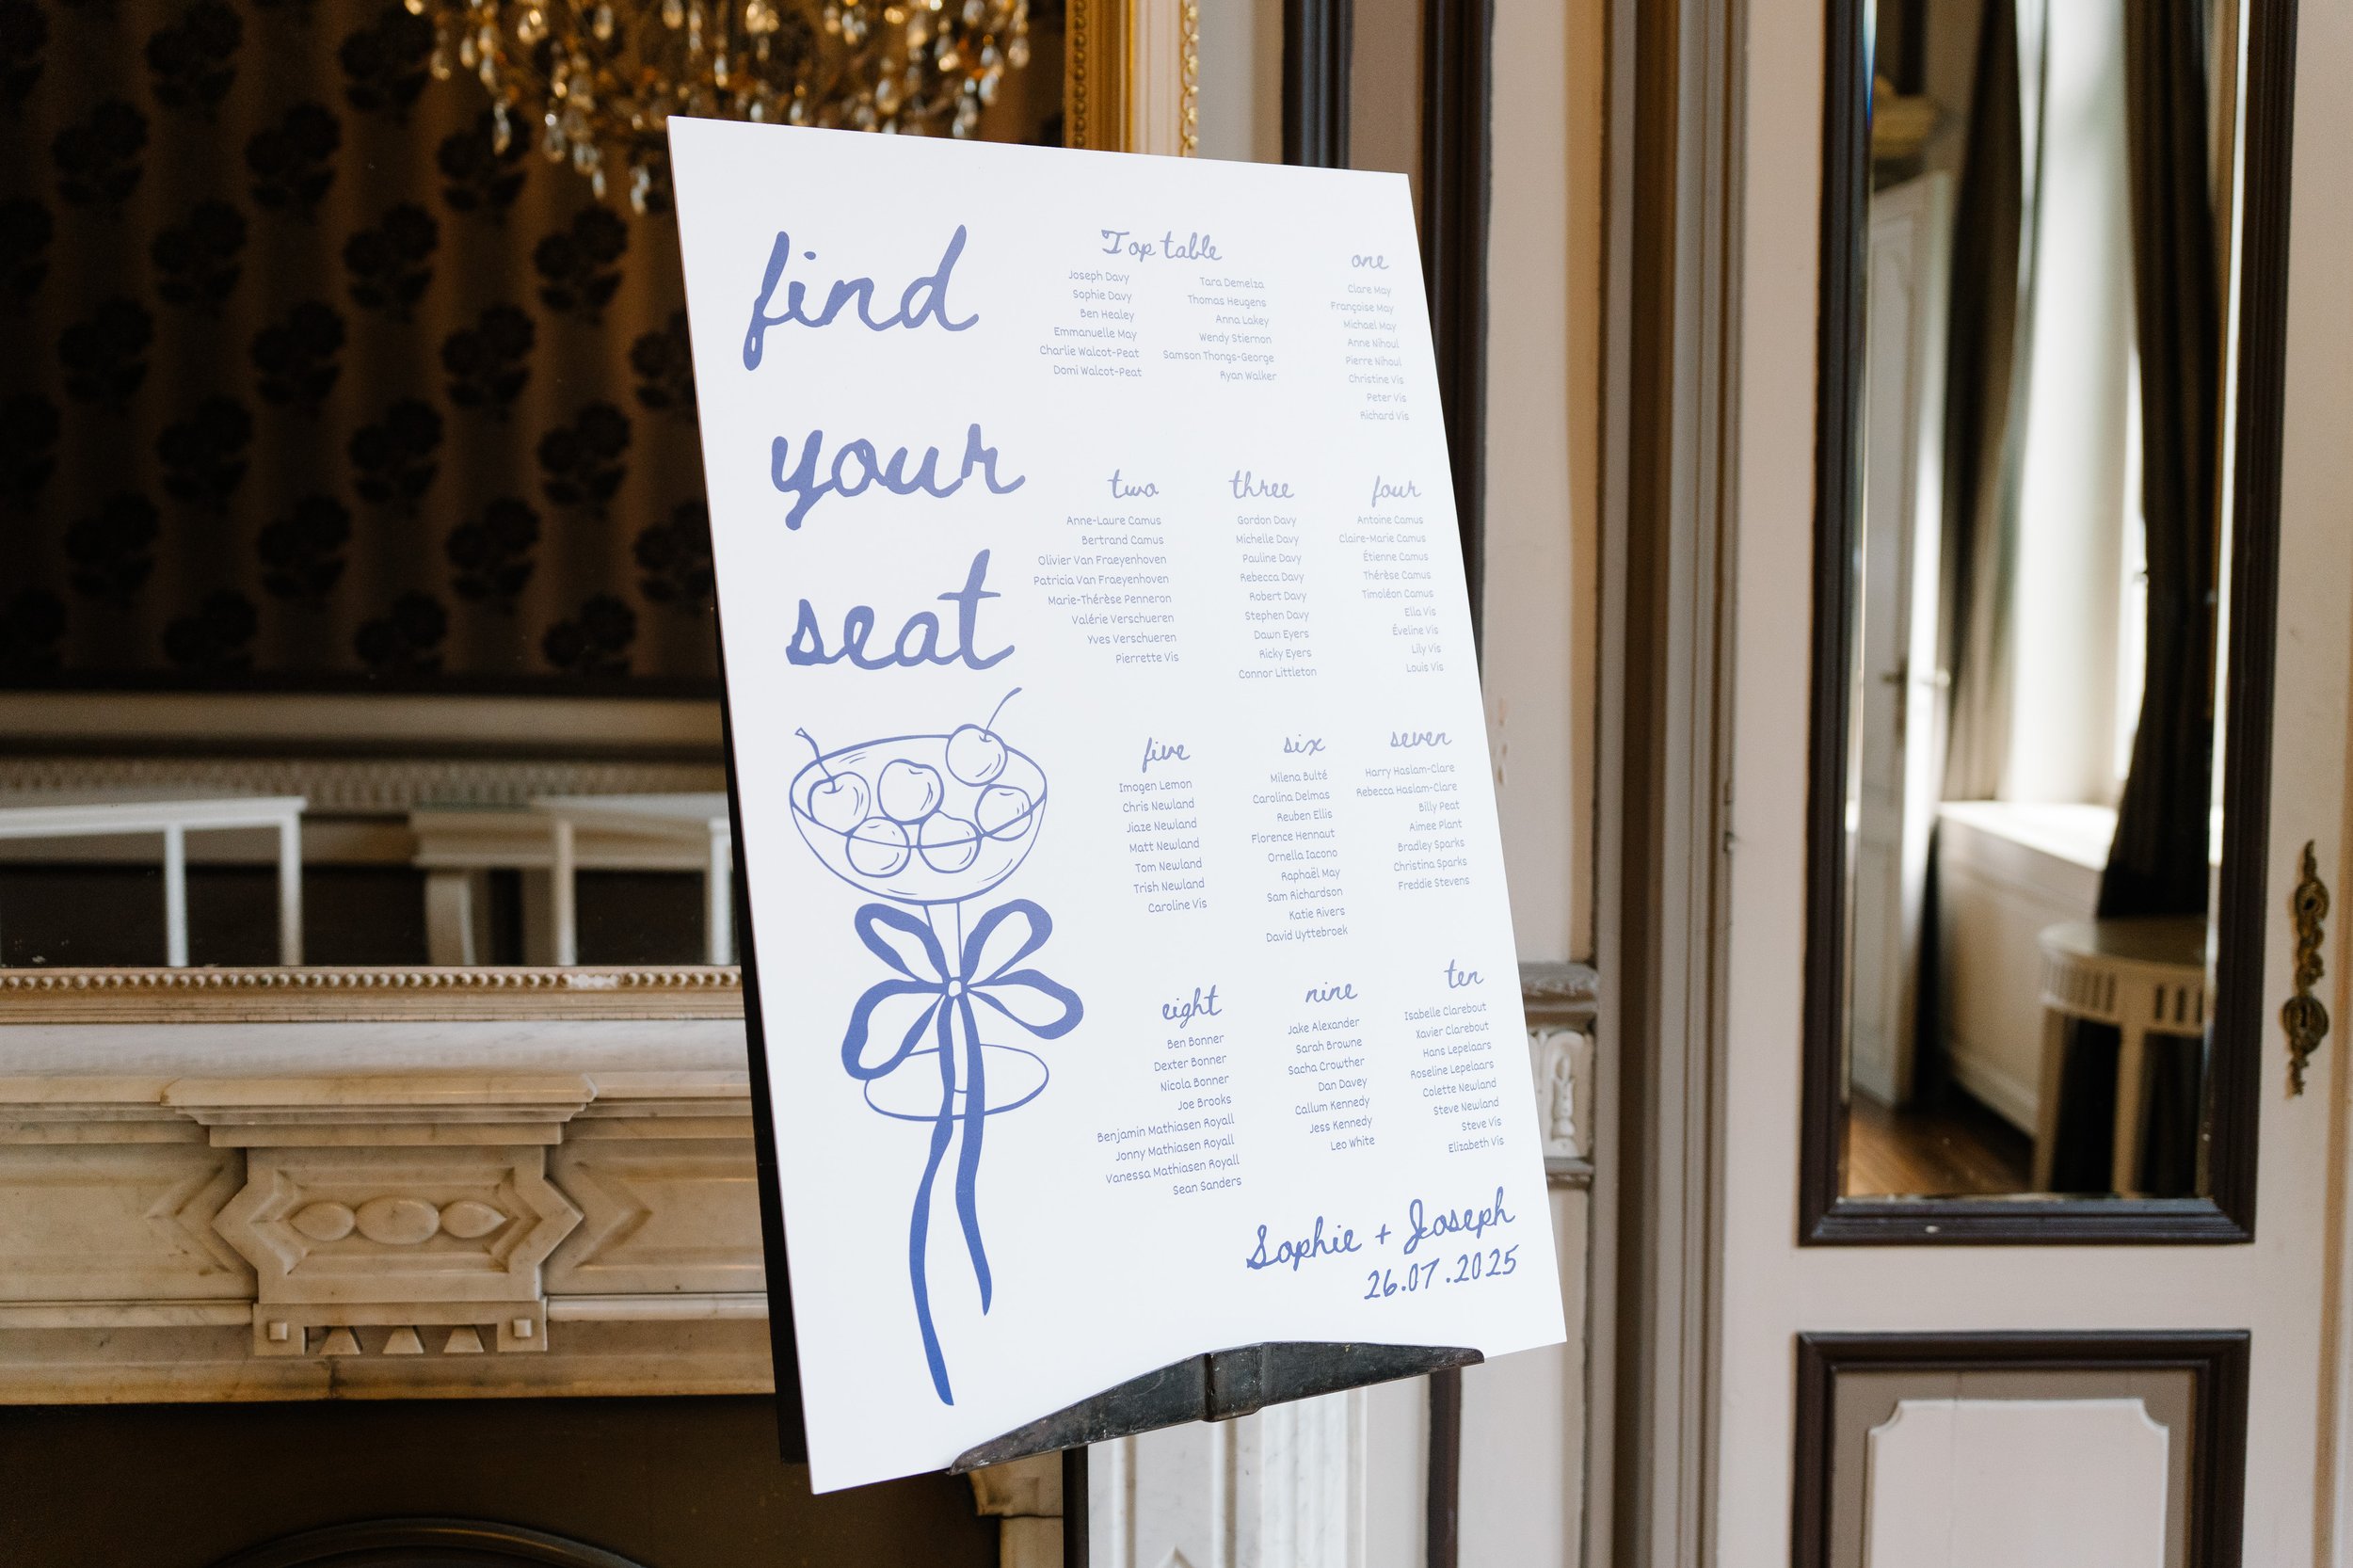 find
your
seat
Top table
Joseph Davy
Sophie Davy
Ben Healey
Emmanuelle May
Charlie Walcot-Peat
Domi Walcot-Peat
Tara Demelza
Thomas Heugens
Anna Lakey
Wendy Stiernon
Samson Thongs-George
Ryan Walker
one
Clare May
Françoise May
Michael May
Anne Nihoul
Pierre Nihoul
Christine Vis
Peter Vis
Richard Vis
two
Anne-Laure Camus
Bertrand Camus
Olivier Van Fraeyenhoven
Patricia Van Fraeyenhoven
Marie-Thérèse Penneron
Valérie Verschueren
Yves Verschueren
Pierrette Vis
three
Gordon Davy
Michelle Davy
Pauline Davy
Rebecca Davy
Robert Davy
Stephen Davy
Dawn Eyers
Ricky Eyers
Connor Littleton
four
Antoine Camus
Claire-Marie Camus
Étienne Camus
Thérèse Camus
Timoléon Camus
Ella Vis
Éveline Vis
Lily Vis
Louis Vis
five
Imogen Lemon
Chris Newland
Jiaze Newland
Matt Newland
Tom Newland
Trish Newland
Caroline Vis
six
Milena Bulté
Carolina Delmas
Reuben Ellis
Florence Hennaut
Ornella Iacono
Raphaël May
Sam Richardson
Katie Rivers
David Uyttebroek
seven
Harry Haslam-Clare
Rebecca Haslam-Clare
Billy Peat
Aimee Plant
Bradley Sparks
Christina Sparks
Freddie Stevens
eight
Ben Bonner
Dexter Bonner
Nicola Bonner
Joe Brooks
Benjamin Mathiasen Royall
Jonny Mathiasen Royall
Vanessa Mathiasen Royall
Sean Sanders
nine
Jake Alexander
Sarah Browne
Sacha Crowther
Dan Davey
Callum Kennedy
Jess Kennedy
Leo White
ten
Isabelle Clarebout
Xavier Clarebout
Hans Lepelaars
Roseline Lepelaars
Colette Newland
Steve Newland
Steve Vis
Elizabeth Vis
Sophie + Joseph
26.07.2025